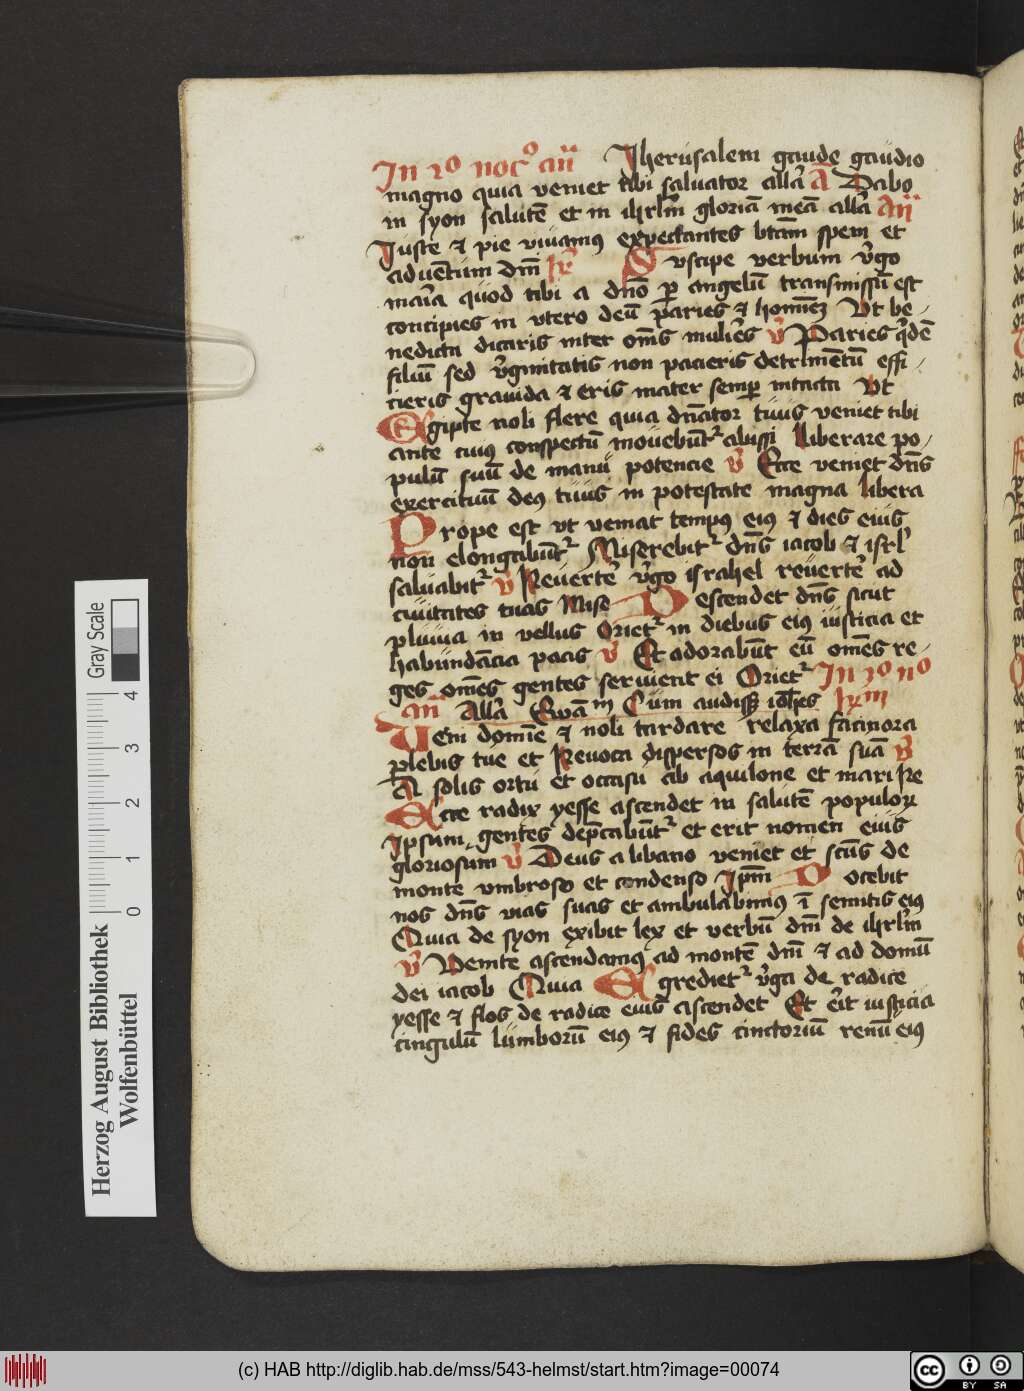 In 2o noct° añ Jherusalem gaude gaudio
magno quia veniet tibi saluator all'a A Dabo
in syon salutē et in ihrl'm gloriā meā all'a Añ
Juste ⁊ pie viuamus expectantes btām spem et
aduentum dm̄ R' Suscipe verbum v'go
maria quod tibi a dn̄o p angelū transmissū est
concipies in vtero deū paries ⁊ hominē Vt be-
nedicta dicaris inter om̄s mulieres v' Paries q'dē
filiū sed v'ginitatis non pacieris detrimētū effi-
cieris grauida ⁊ eris mater semp intacta Vt
Egipte noli flere quia dn̄ator tuus veniet tibi
ante cuius conspectū mouebūt' abissi Liberare po-
pulū suū de manu potencie v' Ecce veniet dn̄s
exercituū deus tuus in potestate magna Libera
Prope est vt veniat tempus eius ⁊ dies eius
non elongabūt' Miserebit' dn̄s iacob ⁊ isrl'
saluabit' v' Reuerte' v'go israhel reuerte' ad
ciuitates tuas Mise Descendet dn̄s sicut
pluuia in vellus Oriet' in diebus eius iusticia et
habundācia pacis v' Et adorabūt eū om̄es re-
ges om̄es gentes seruient ei Oriet' In 2o no
añ All'a Ewā m Cum audiss3 ioh̄es
Veni domine ⁊ noli tardare relaxa facinora
plebis tue et Reuoca dispersos in terrā suā v'
A solis ortu et occasu ab aquilone et mari Re
Ecce radix yesse ascendet in salutē populor
Ipsum gentes dep̄cabūt' et erit nomen eius
gloriosum v' Deus a libano veniet et scūs de
monte vmbroso et condenso Ipm̄ Docebit
nos dn̄s vias suas et ambulabimus ī semitis eius
Quia de syon exibit lex et verbū dm̄ de ihrl'm
v' Venite ascendamus ad montē dm̄ ⁊ ad domū
dei iacob Quia Egrediet' v'ga de radice
yesse ⁊ flos de radice eius ascendet Et erit iusticia
cingulū lumborū eius ⁊ fides cinctoriū renū eius
Gray Scale
4
3
2
1
0
Herzog August Bibliothek
Wolfenbüttel
(c) HAB http://diglib.hab.de/mss/543-helmst/start.htm?image=00074
cc BY SA